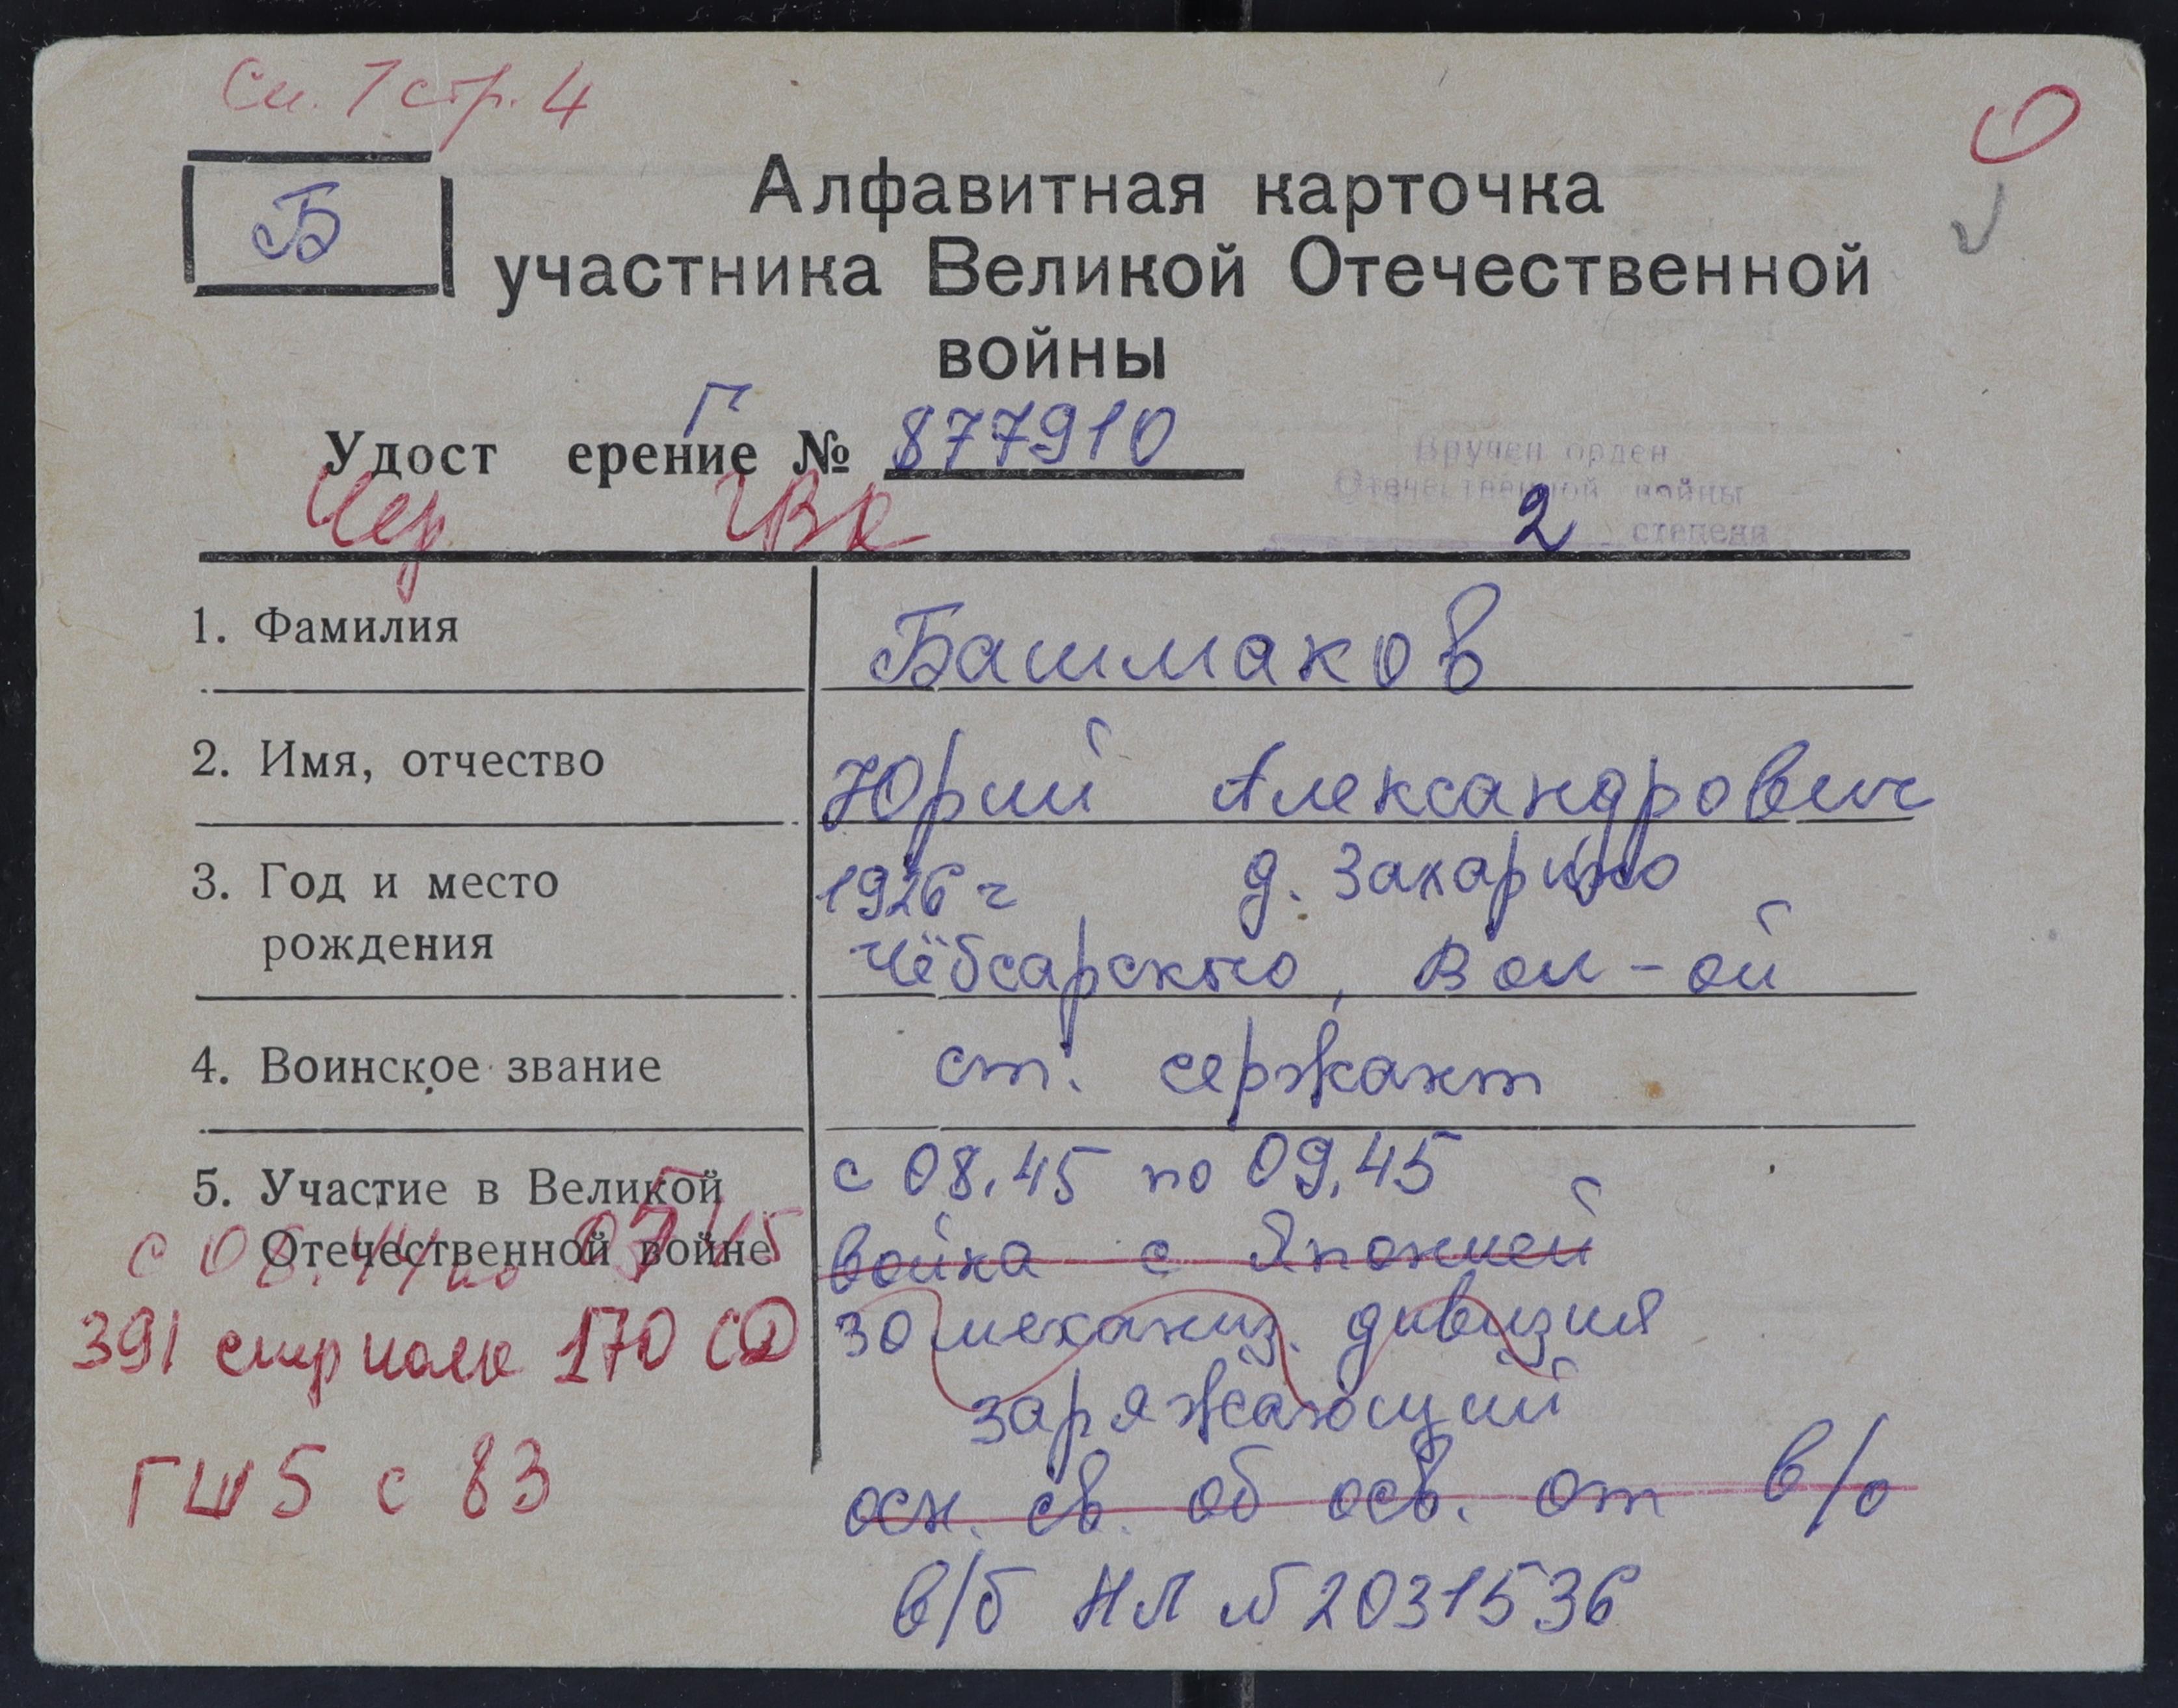 См. 7 стр. 4
Б
Алфавитная карточка
участника Великой Отечественной
войны
Удост ерение Г № 877910
Вручен орден
Отечественной войны
2 степени
Чер ГВК
1. Фамилия Башмаков
2. Имя, отчество Юрий Александрович
3. Год и место рождения 1926 г д. Захарино
Чёбсарского, Вол-ой
4. Воинское звание ст. сержант
5. Участие в Великой Отечественной войне с 08.45 по 09.45
война с Японией
30 механиз. дивизия
заряжающий
осн. св. об осв. от в/о
в/б НЛ № 2031536
391 стр полк 170 СД
ГШ 5 с 83